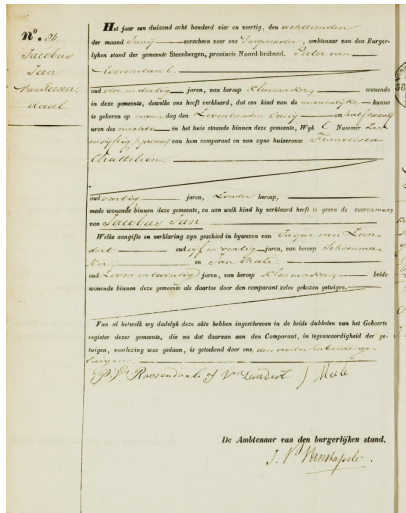 No. 84
Jacobus
Jan
van Roosen
daal
Het jaar een duizend acht honderd vier en veertig, den achttienden
der maand Junij verscheen voor ons ambtenaar van den Burger-
lijken stand der gemeente Steenbergen, provincie Noord-braband. Pieter van
Roosendaal
oud jaren, van beroep wonende
in deze gemeente, dewelke ons heeft verklaard, dat een kind van de mannelijke kunne
is geboren op maan dag den Zeventienden Junij en half twaalf
uren des nachts in het huis staande binnen deze gemeente, Wyk C Nummer Zes
en vijftig van hem comparant en van zyne huisvrouw Francisca
Chattelion
oud veertig jaren, Zonder beroep,
mede wonende binnen deze gemeente, en aan welk kind hy verklaard heeft te geven de voornamen
van Jacobus Jan
Welke aangifte en verklaring zyn geschied in bywezen van van Zun
dert oud vyf en veertig jaren, van beroep Schoenma
ker en Jan
oud Zeven en twintig jaren, van beroep beide
wonende binnen deze gemeente als daartoe door den comparant zelve gekozen getuigen.
Van al hetwelk wy dadelyk deze akte hebben ingeschreven in de beide dubbelen van het Geboorte
register dezer gemeente, die na dat daarvan aan den Comparant, in tegenwoordigheid der ge-
tuigen, voorlezing was gedaan, is geteekend door ons, den comparant beide ge-
tuigen
Roosendaal J van Zundert J
De Ambtenaar van den burgerlijken stand.